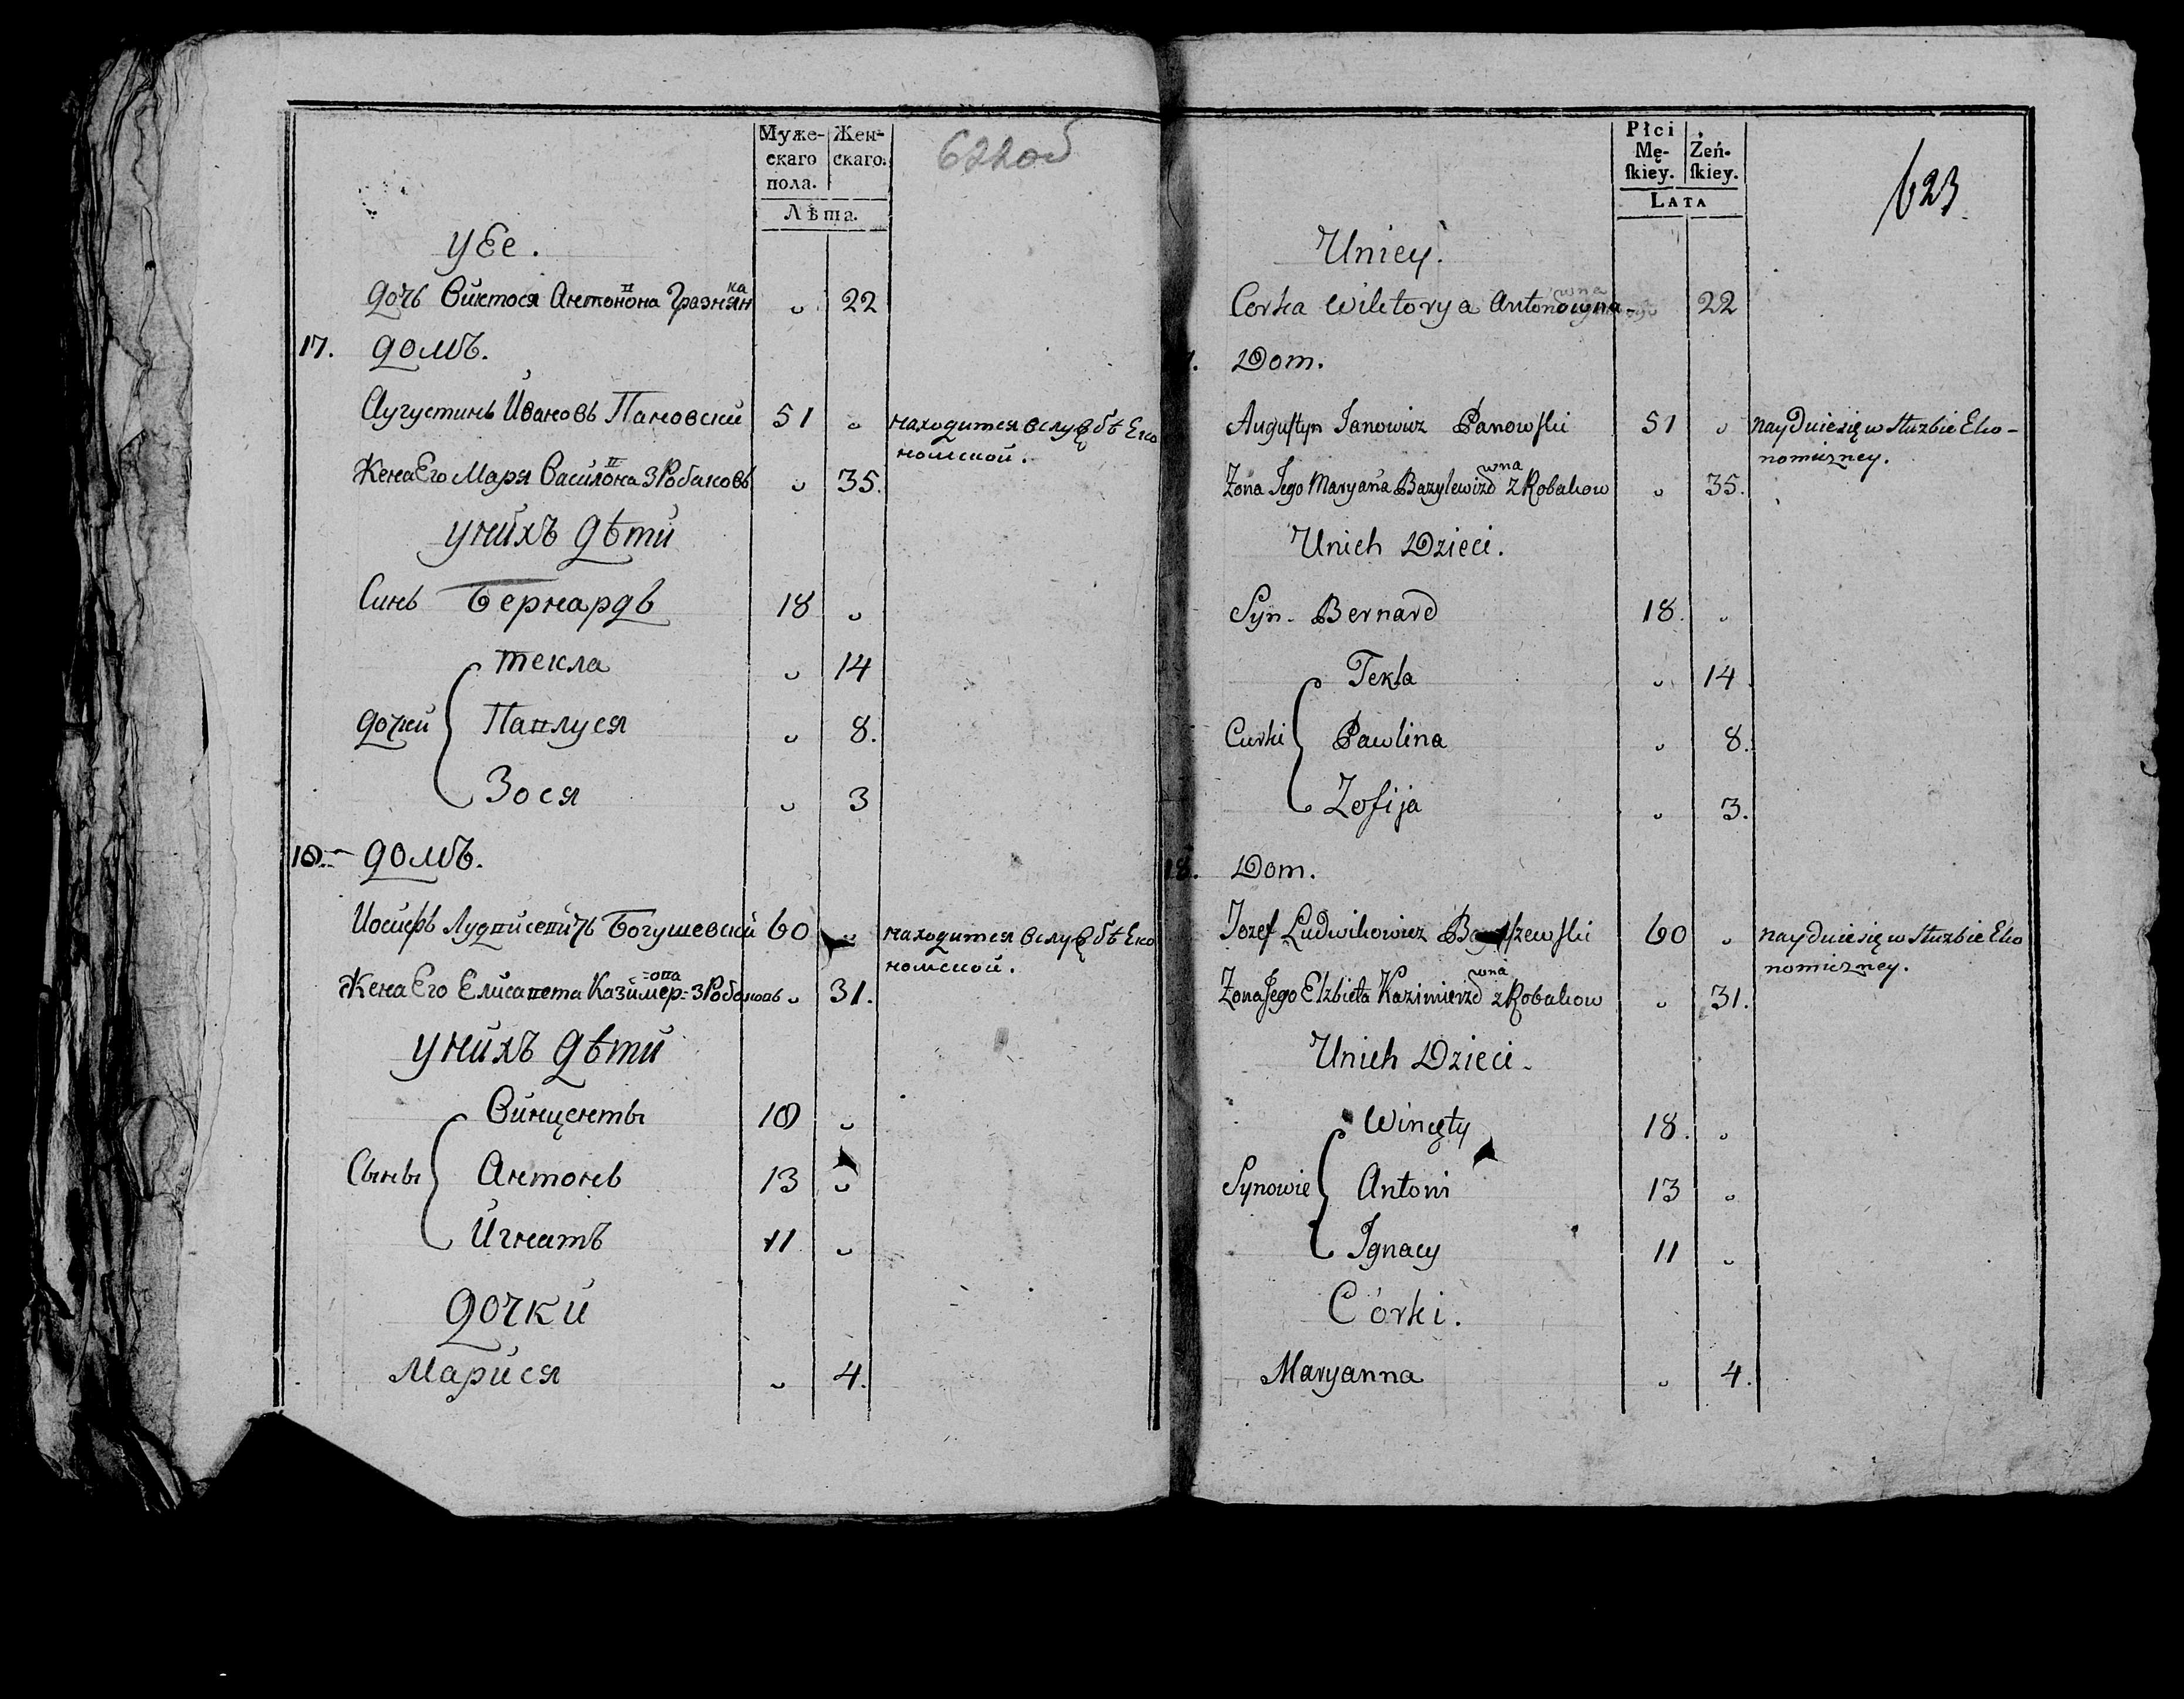 Муже-
скаго
пола.
Жен-
скаго.
Лѣта.
622об
уЕе.
дочь Виктося Антонона Грязнянка
22
17. домъ.
Аугустинь Ивановь Пановский 51 находится вслужбѣ Еко
номской.
Жена Его Маря Василона З Робаковь 35.
унихъ дѣти
Синь Бернардь 18
дочки
текла 14
Павлуся 8.
Зося 3
18. домъ.
Иосифь Лудвисевичь Богушевский 60 находится вслужбѣ Еко
номской.
Жена Его Елисавета Казимер=ова З Робаковь 31.
унихъ дѣти
Сыны
Винценты 18
Антонь 13
Игнатъ 11
дочки
Марися 4.
Płci
Mę-
ſkiey.
Żeń-
ſkiey.
LATA
623
Uniey.
Corka Wiktorya Antonowna 22
Dom.
Auguſtyn Janowicz Panowſki 51 nayduie się w służbie Eko-
nomiczney.
Żona Jego Maryana Bazylewiczowna z Robakow 35.
Unich Dzieci.
Syn. Bernard 18.
Curki
Tekla 14.
Pawlina 8.
Zofija 3.
18. Dom.
Jozef Ludwikowicz 60 nayduie się w służbie Eko
nomiczney.
Żona Jego Elzbieta Kazimierzowna z Robakow 31.
Unich Dzieci.
Synowie
Wincęty 18.
Antoni 13
Ignacy 11
Córki.
Maryanna 4.